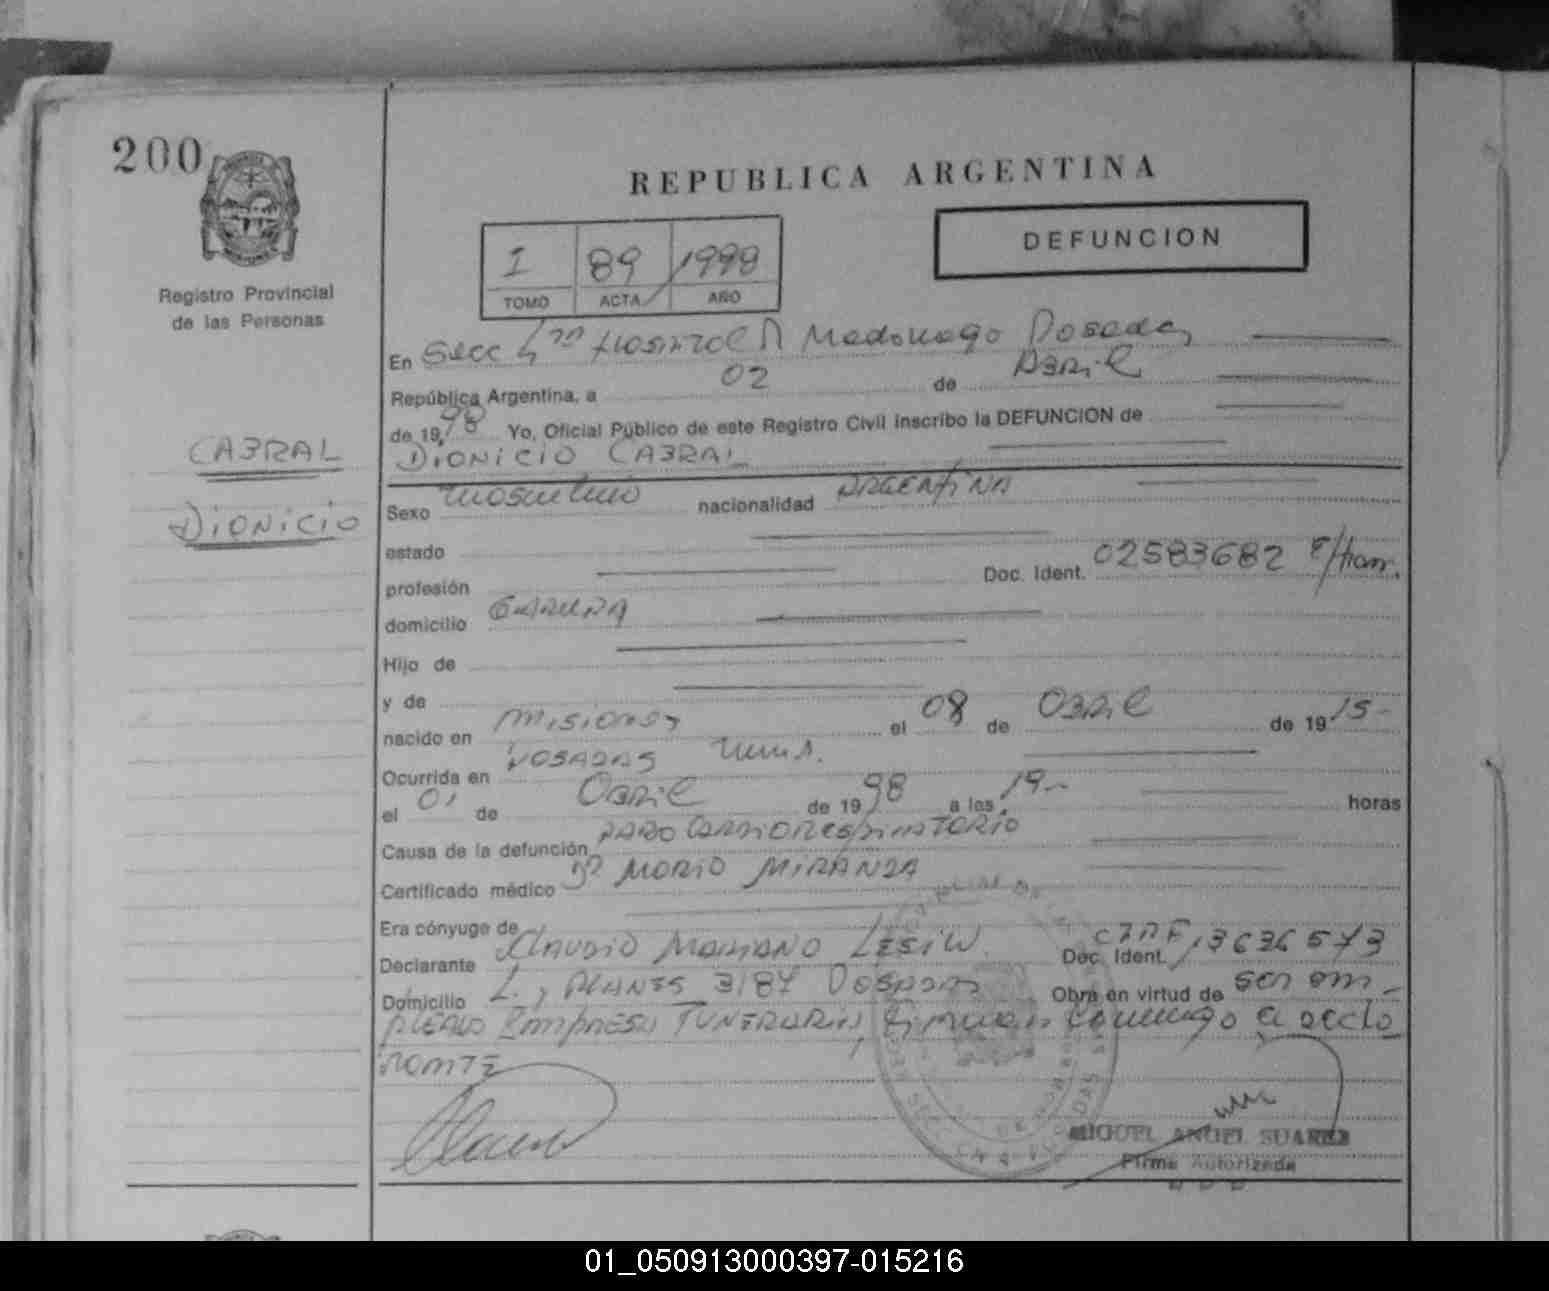 200
REPUBLICA ARGENTINA
DEFUNCION
I 89 1998
TOMO ACTA AÑO
Registro Provincial
de las Personas
En Secc 4ta Hospital R Madariaga Posadas
República Argentina, a 02 de Abril
de 19 98 Yo, Oficial Público de este Registro Civil inscribo la DEFUNCION de
DIONICIO CABRAL
CABRAL
DIONICIO
Sexo masculino nacionalidad ARGENTINA
estado
profesión Doc. Ident. 02583682 e/tram.
domicilio GARUPA
Hijo de
y de
nacido en misiones el 08 de Abril de 19 15-
Ocurrida en POSADAS mnes.
el 01 de Abril de 19 98 a las 19- horas
Causa de la defunción PARO CARDIORESPIRATORIO
Certificado médico Dr MARIO MIRANDA
Era cónyuge de
Declarante CLAUDIO MARIANO LESIW Doc. Ident. 13636573
Domicilio L. PLANES 3187 Posadas Obra en virtud de ser em-
pleado Empresa Funeraria, firman conmigo el decla
rante
MIGUEL ANGEL SUAREZ
Firma Autorizada
01_050913000397-015216